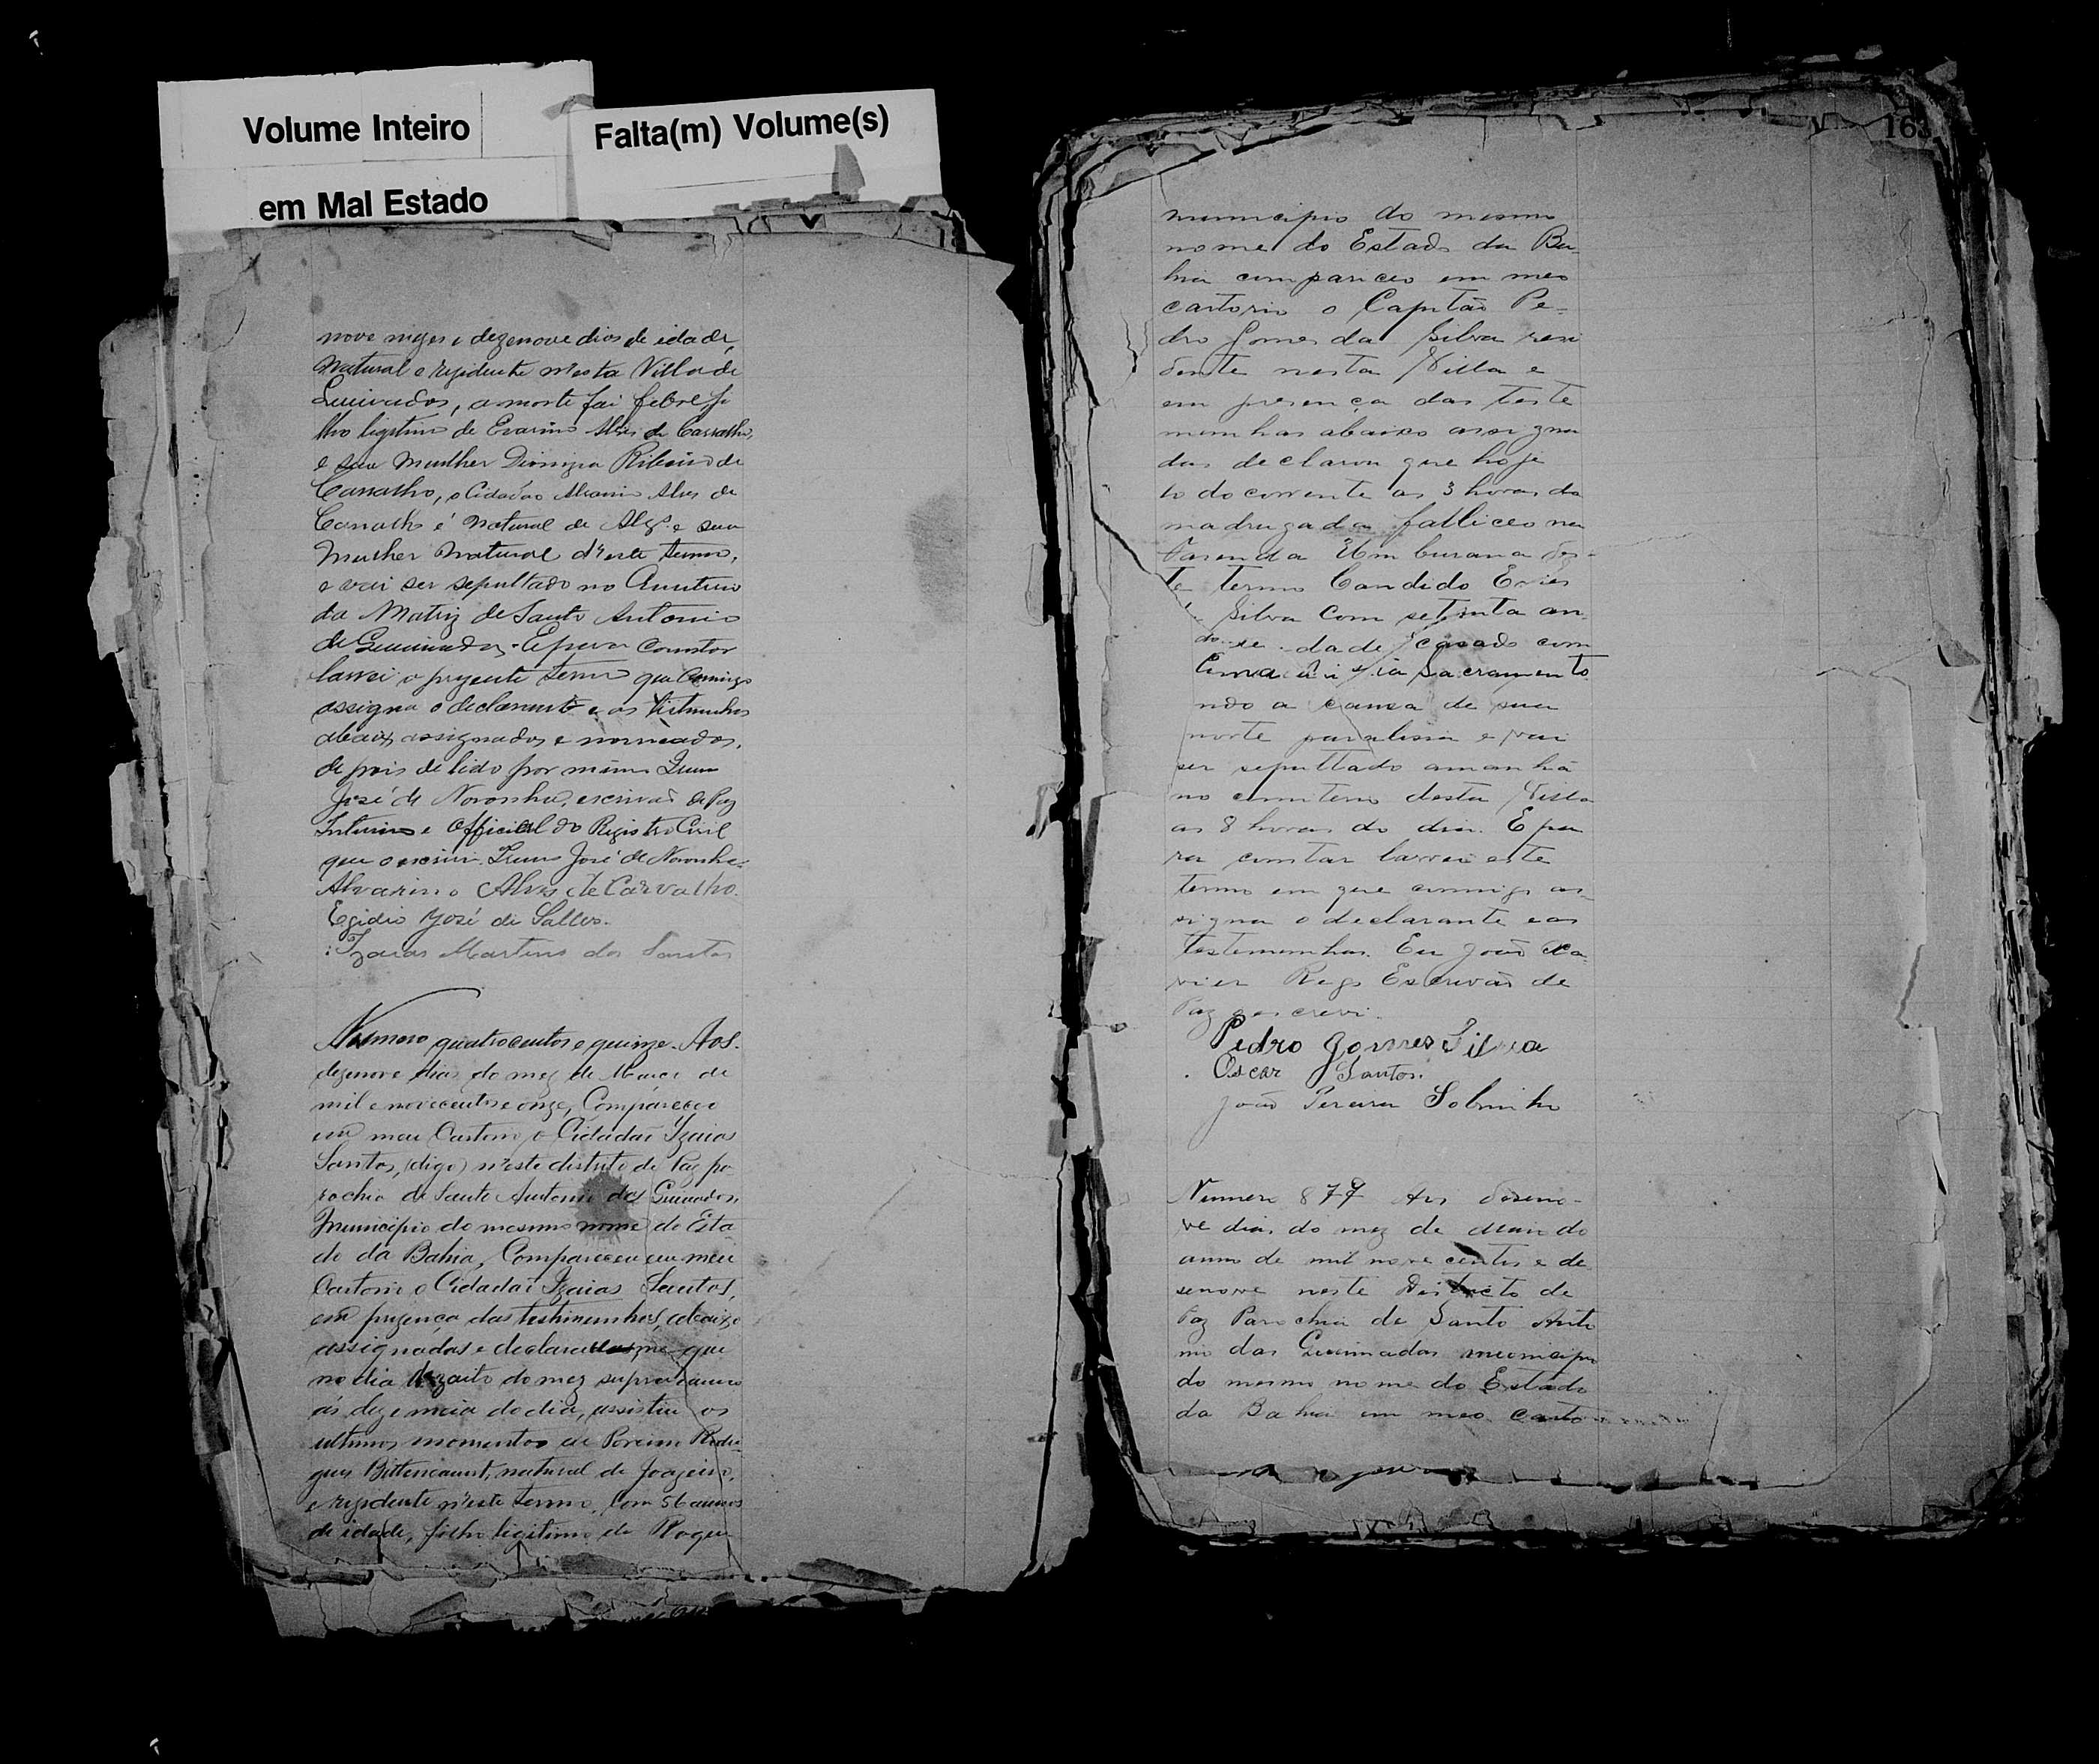 Volume Inteiro
em Mal Estado
Falta(m) Volume(s)
nove mezes e dezenove dias de idade,
natural e rezidente n'esta Villa de
Queimadas, a morte foi febre, fi
lho legitimo de Alves de Carvalho,
e sua mulher Dionizia Ribeiro de
Carvalho, o Cidadão Alves de
Carvalho é natural de e sua
mulher natural d'este termo,
e vai ser sepultado no Cemiterio
da Matriz de Santo Antonio
de Queimadas. E para constar
lavrei o prezente termo que comigo
assigna o declarante e as testimunhas
abaixo assignados e nomeados,
de pois de lido por mim
José de Noronha, escrivão de Paz
Interino e Official do Registro Civil
que o escrivi. José de Noronha.
Alvarino Alves de Carvalho.
Egidio José de Salles.
Izaias Martins dos Santos
Numero quatrocentos e quinze. Aos
dezenove dias do mez de Março de
mil e novecentos e onze, Compareceo
em meu Cartorio o Cidadão Izaias
Santos, (digo) n'este distrito de Paz pa-
rochia de Santo Antonio das Queimadas,
Municipio do mesmo nome do Esta-
do da Bahia, Compareceu em meu
Cartorio o Cidadão Izaias Santos,
em prezença das testimunhas abaixo
assignadas e declarou que
no dia dezoito do mez supra
ás dez e meia do dia, assistiu os
ultimos momentos de Rodri-
gues Bittencourt, natural de Joazeiro,
e rezidente n'este termo, com 56 annos
de idade, filho legitimo de Roque
163
municipio do mesmo
nome do Estado da Ba-
hia compareceo em meo
cartorio o Capitão Pe-
dro Gomes da Silva resi
dente nesta Villa e
em presença das teste
munhas abaixo assigna
das declarou que hoje
10 do corrente as 3 horas da
madrugada falleceo na
Fasenda Umburana des-
te termo Candido
Silva com setenta an
de .dade casado com
Sacramento
ndo a causa de sua
morte paralisia e vai
ser sepultado amanhã
no cemiterio desta Villa
as 8 horas do dia. E pa
ra constar lavrei este
termo em que commigo as-
signa o declarante e as
testemunhas. Eu João Xa-
vier Rego Escrivão de
Paz escrevi.
Pedro Gomes Silva
Oscar Santos.
João Pereira Sobrinho
Numero 877 Aos deseno-
ve dias do mez de do
anno de mil nove centos e de
senove neste Districto de
Paz Parochia de Santo Anto
nio das Queimadas municipio
do mesmo nome do Estado
da Bahia em meo carto